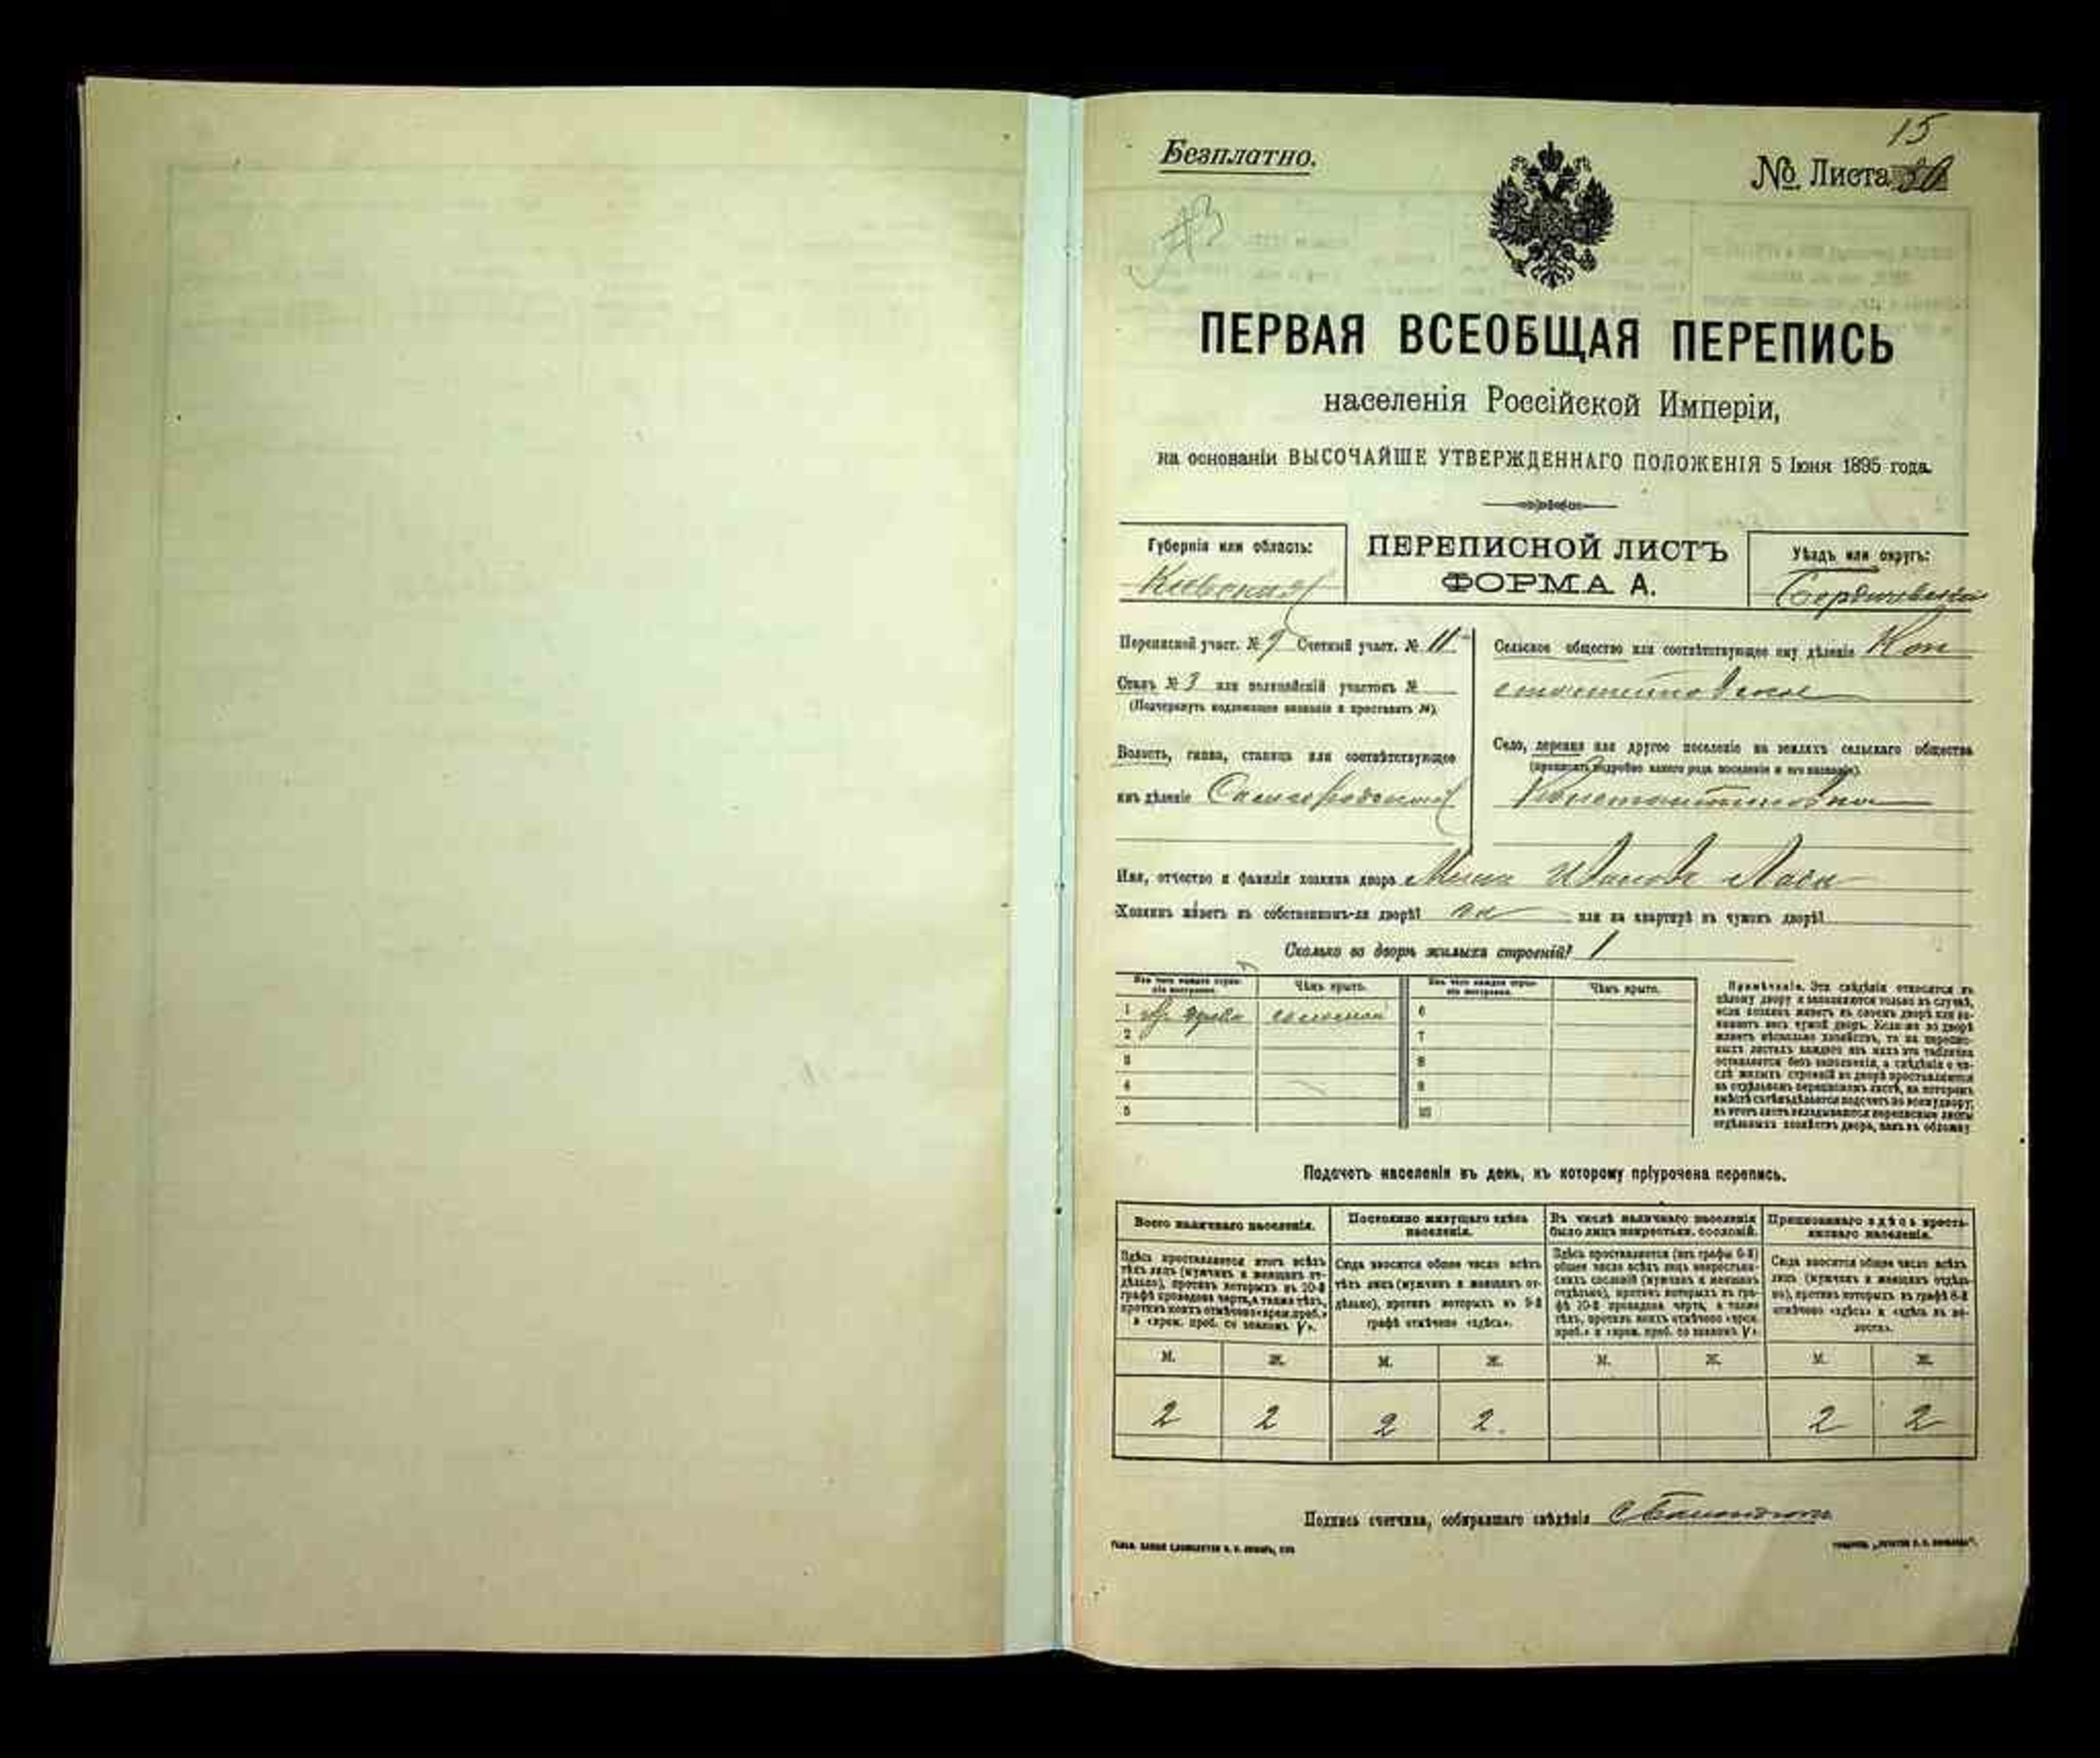 15
Безплатно.
№ Листа 30
ПЕРВАЯ ВСЕОБЩАЯ ПЕРЕПИСЬ
населенія Россійской Имперіи,
на основаніи ВЫСОЧАЙШЕ УТВЕРЖДЕННАГО ПОЛОЖЕНІЯ 5 Іюня 1895 года.
Губернія или область:
Кіевская
ПЕРЕПИСНОЙ ЛИСТЪ
ФОРМА А.
Уѣздъ или округъ:
Бердичевскій
Переписной участ. № 9 Счетный участ. № 11
Станъ № 3 или полицейскій участокъ №
(Подчеркнуть надлежащее названіе и проставить №).
Волость, гмина, станица или соотвѣтствующее
имъ дѣленіе Самгородская
Сельское общество или соотвѣтствующее ему дѣленіе Кон
стантиновское
Село, деревня или другое поселеніе на земляхъ сельскаго общества
(прописать подробно какого рода поселеніе и его названіе).
Константиновка
Имя, отчество и фамилія хозяина двора
Хозяинъ живетъ въ собственномъ-ли дворѣ? да или на квартирѣ въ чужомъ дворѣ?
Сколько во дворѣ жилыхъ строеній? 1
Изъ чего каждое строеніе построено.
Чѣмъ крыто.
Изъ чего каждое строеніе построено.
Чѣмъ крыто.
1 изъ дерева соломой 6
2 7
3 8
4 9
5 10
Примѣчаніе. Эти свѣдѣнія относятся къ
цѣлому двору и заполняются только въ случаѣ,
если хозяинъ живетъ въ своемъ дворѣ или за-
нимаетъ весь чужой дворъ. Если же во дворѣ
живетъ нѣсколько хозяйствъ, то на перепис-
ныхъ листахъ каждаго изъ нихъ эта табличка
оставляется безъ заполненія, а свѣдѣнія о чи-
слѣ жилыхъ строеній во дворѣ проставляются
на отдѣльномъ переписномъ листѣ, на которомъ
вмѣстѣ съ тѣмъ дѣлается подсчетъ по всему двору;
въ этотъ листъ вкладываются переписные листы
отдѣльныхъ хозяйствъ двора, какъ въ обложку
Подсчетъ населенія въ день, къ которому пріурочена перепись.
Всего наличнаго населенія.
Постоянно живущаго здѣсь населенія.
Въ числѣ наличнаго населенія было лицъ некрестьян. сословій.
Приписаннаго здѣсь крестьянскаго населенія.
Здѣсь проставляется итогъ всѣхъ
тѣхъ лицъ (мужчинъ и женщинъ от-
дѣльно), противъ которыхъ въ 10-й
графѣ проведена черта, а также тѣхъ,
противъ коихъ отмѣчено «врем. проб.»
и «врем. проб. со знакомъ V».
Сюда вносится общее число всѣхъ
тѣхъ лицъ (мужчинъ и женщинъ от-
дѣльно), противъ которыхъ въ 9-й
графѣ отмѣчено «здѣсь».
Здѣсь проставляется (изъ графы 6-й)
общее число всѣхъ лицъ некрестьян-
скихъ сословій (мужчинъ и женщинъ
отдѣльно), противъ которыхъ въ гра-
фѣ 10-й проведена черта, а также
тѣхъ, противъ коихъ отмѣчено «врем.
проб.» и «врем. проб. со знакомъ V».
Сюда вносится общее число всѣхъ
лицъ (мужчинъ и женщинъ отдѣль-
но), противъ которыхъ въ графѣ 8-й
отмѣчено «здѣсь» и «здѣсь въ во-
лости».
М. Ж. М. Ж. М. Ж. М. Ж.
2 2 2 2. 2 2
Подпись счетчика, собиравшаго свѣдѣнія